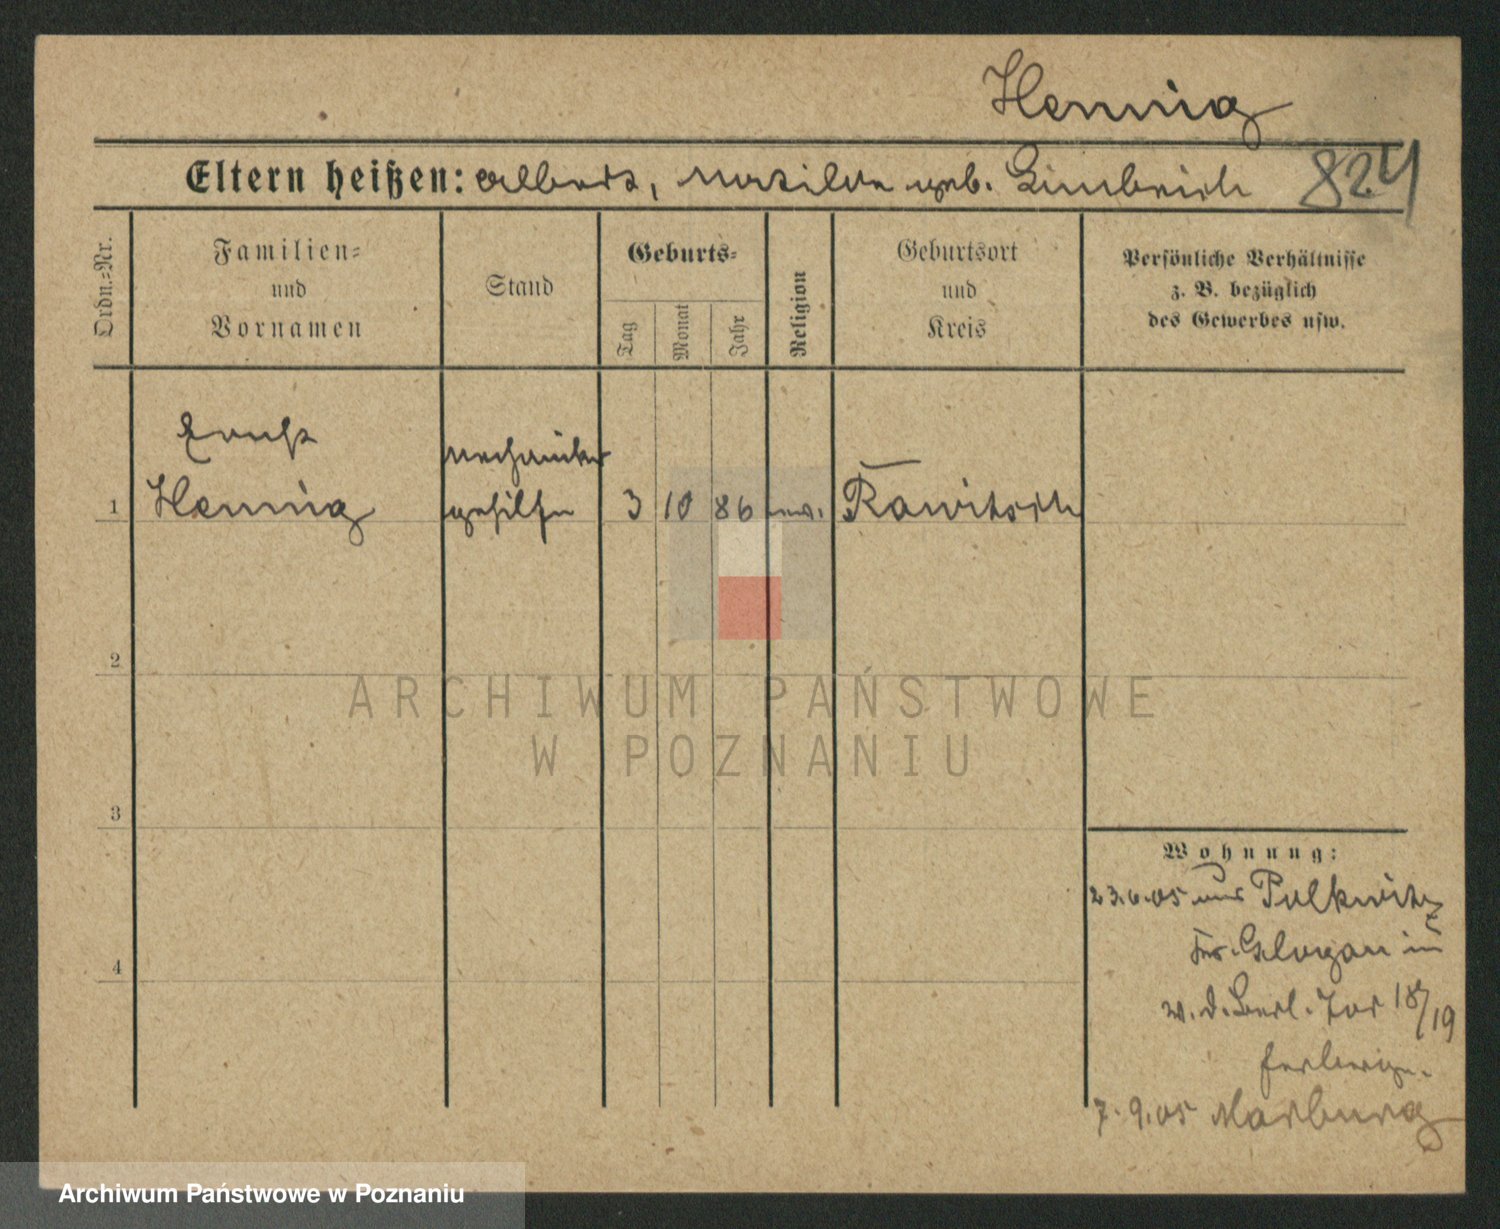 Hennig
Eltern heißen: Albert, Mathilde geb. Limbrich 824
Ordn.=Nr.
Familien=
und
Vornamen
Stand
Geburts=
Tag
Monat
Jahr
Religion
Geburtsort
und
Kreis
Persönliche Verhältnisse
z. B. bezüglich
des Gewerbes usw.
Ernst
Mechaniker
1 Hennig gehilfe 3 10 86 ev. Rawitsch
2
3
4
Wohnung:
23.6.05 aus Polkwitz
Kr. Glogau in
v. d. Berl. Tor 18/19
7.9.05 Marburg
ARCHIWUM PAŃSTWOWE
W POZNANIU
Archiwum Państwowe w Poznaniu